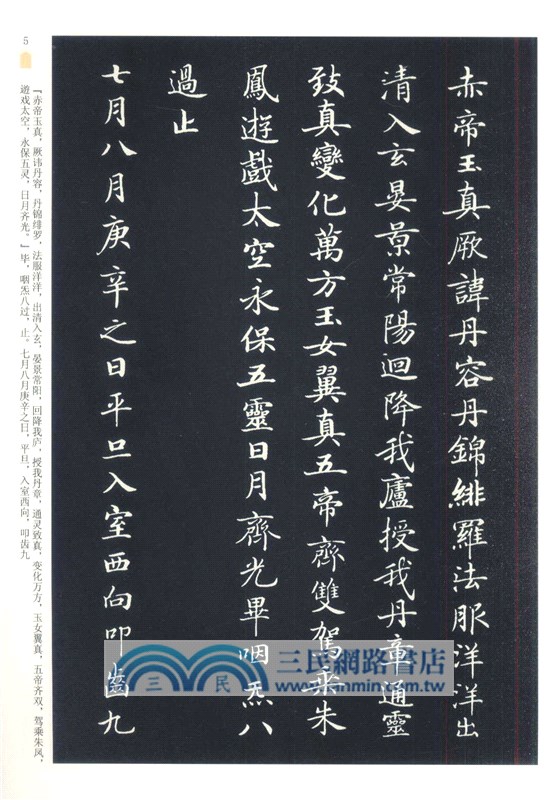 赤帝玉真厥諱丹容丹錦緋羅法服洋洋出
清入玄晏景常陽迴降我廬授我丹章通靈
致真變化萬方玉女翼真五帝齊雙駕乘朱
鳳遊戲太空永保五靈日月齊光畢咽炁八
過止
七月八月庚辛之日平旦入室西向叩齒九
「赤帝玉真，厥讳丹容，丹锦绯罗，法服洋洋，出清入玄，晏景常阳，回降我庐，授我丹章，通灵致真，变化万方，玉女翼真，五帝齐双，驾乘朱凤，
遊戏太空，永保五灵，日月齐光。」毕，咽炁八过，止。七月八月庚辛之日，平旦，入室西向，叩齿九
5
三民網路書店
www.sanmin.com.tw
三
民